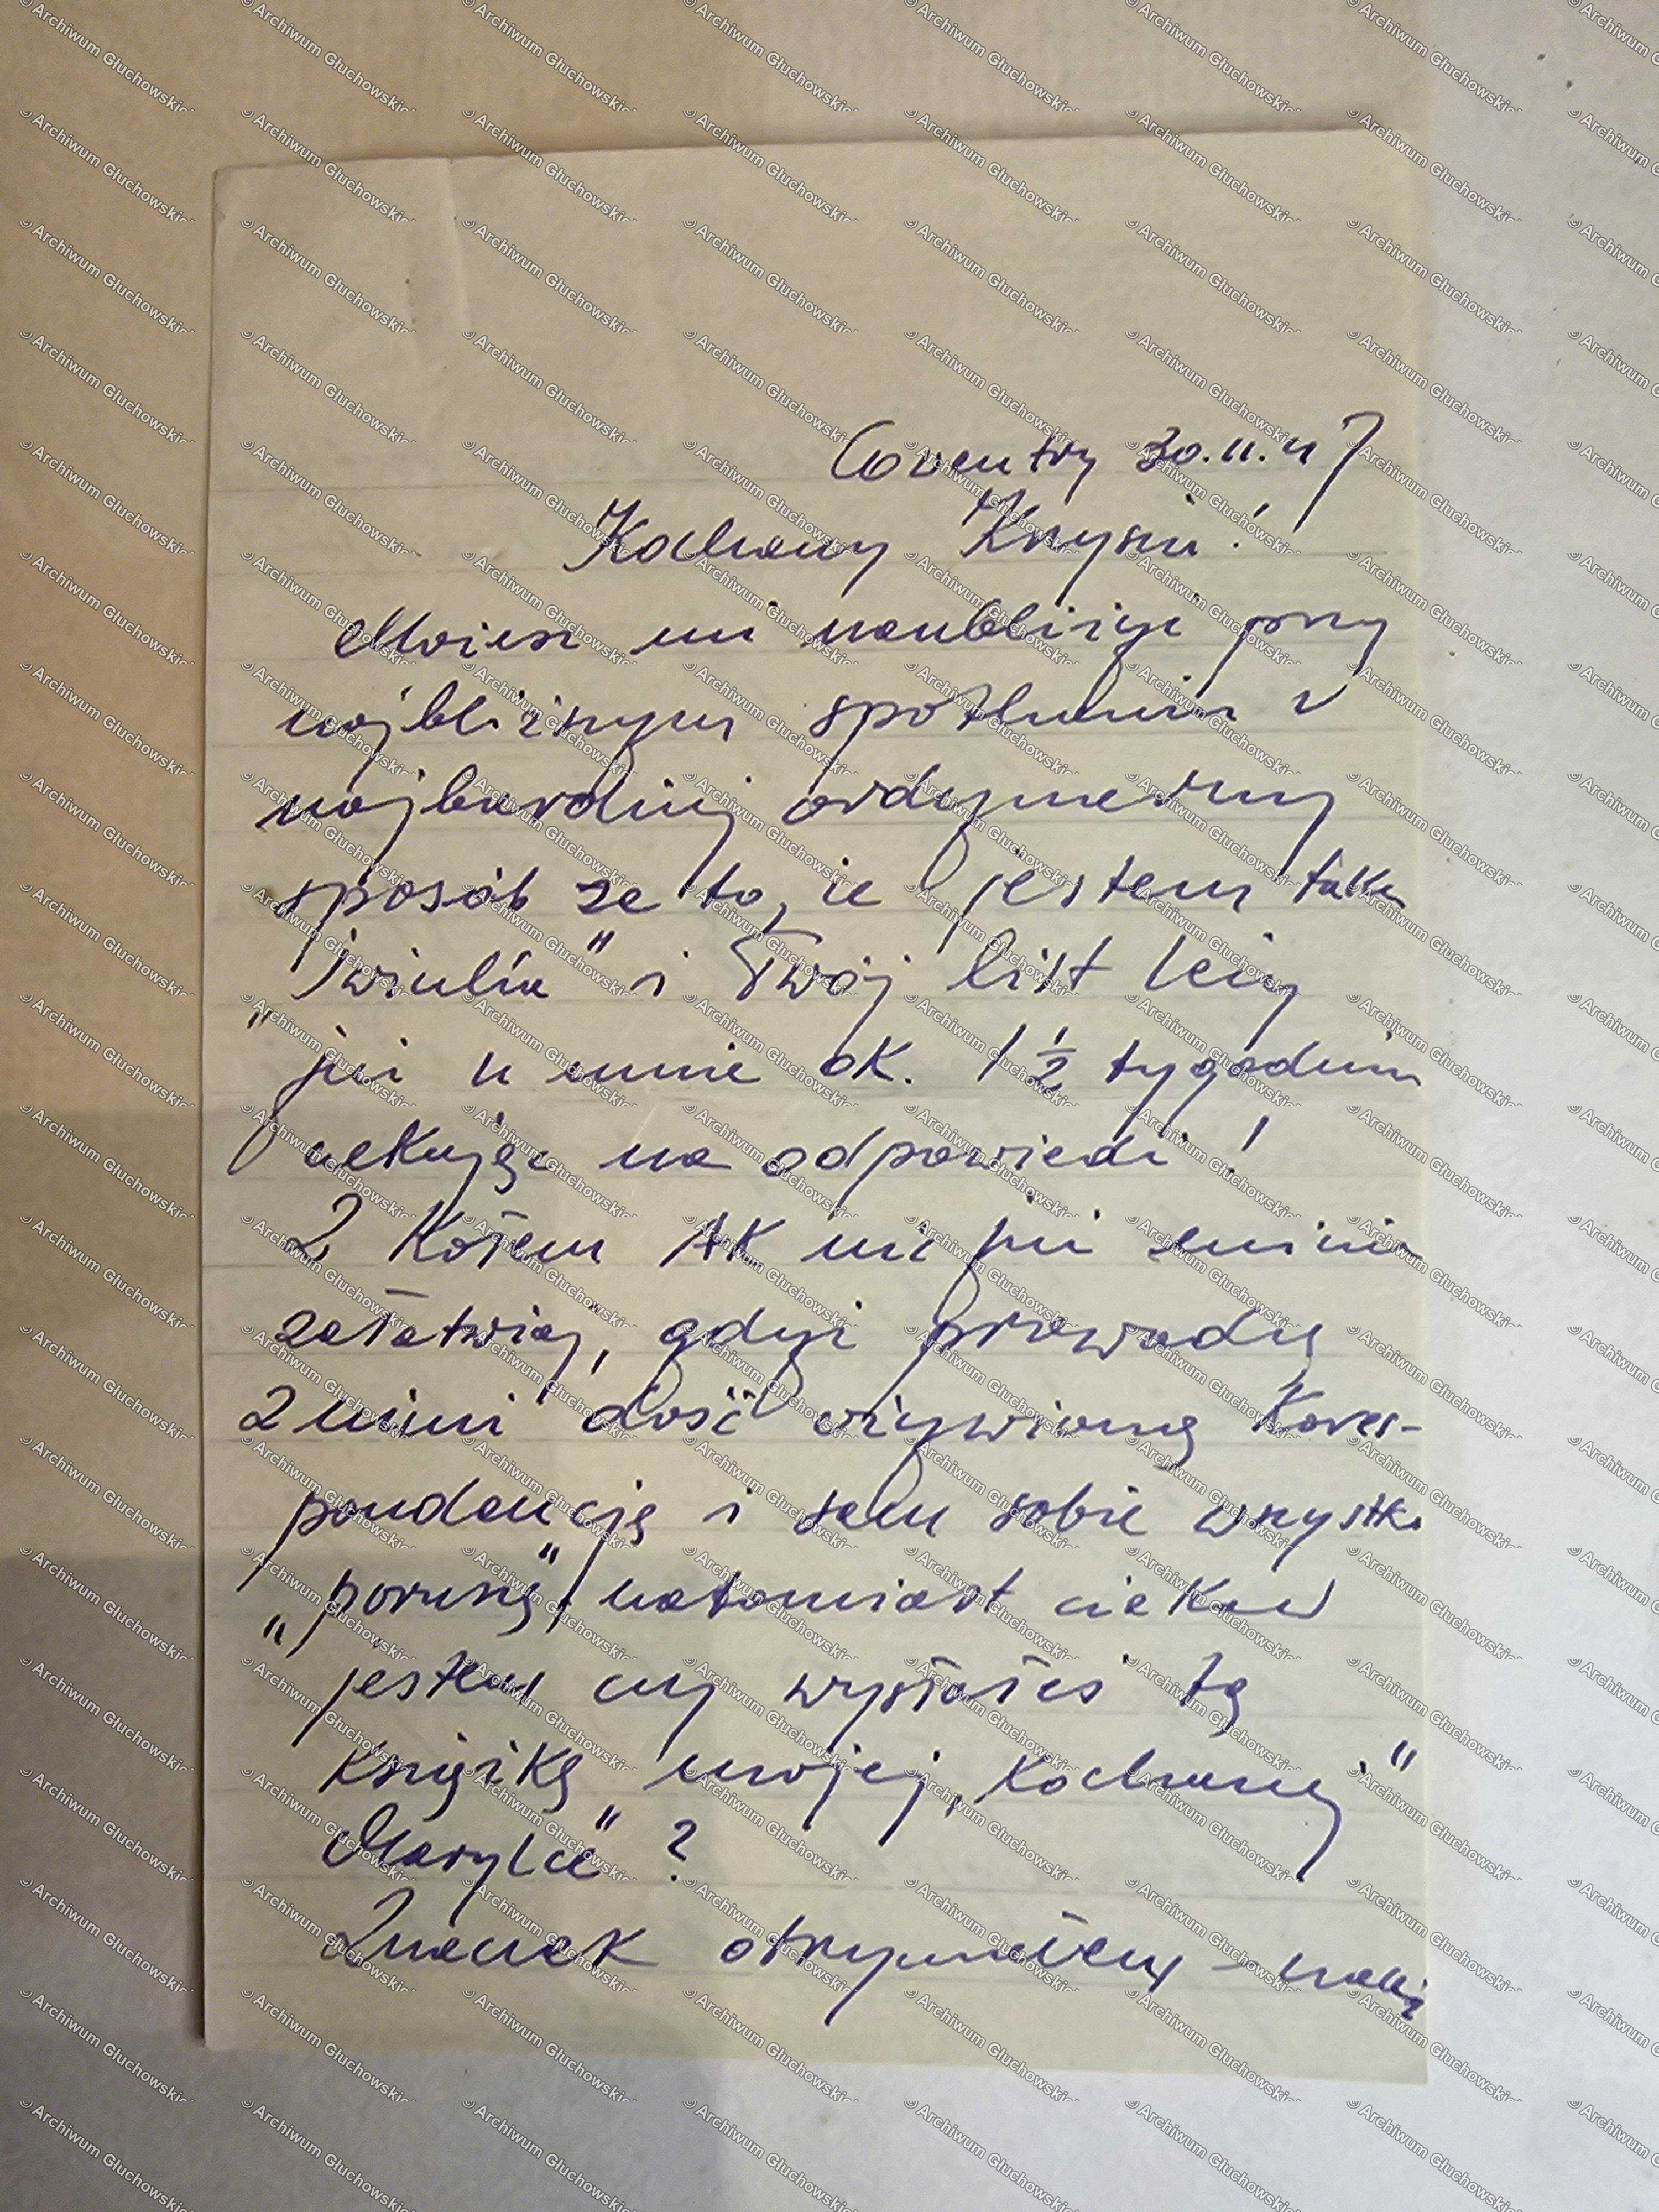 Coventry 30.11.47
Kochany Krzysiu!
Możesz mi naubliżyć przy
najbliższym spotkaniu w
najbardziej ordynarny
sposób za to, że jestem taka
"świnia" i Twój list leży
już u mnie ok. 1 1/2 tygodnia
czekając na odpowiedź!
Z Kołem AK nic już
załatwiaj, gdyż prowadzę
z nimi dość ożywioną kores-
pondencję i sam sobie wszystko
"poruszę", natomiast ciekaw
jestem czy wysłałeś tą
książkę mojej „kochanej"
Marylce" ?
Znaczek otrzymałem –
© Archiwum Głuchowskie